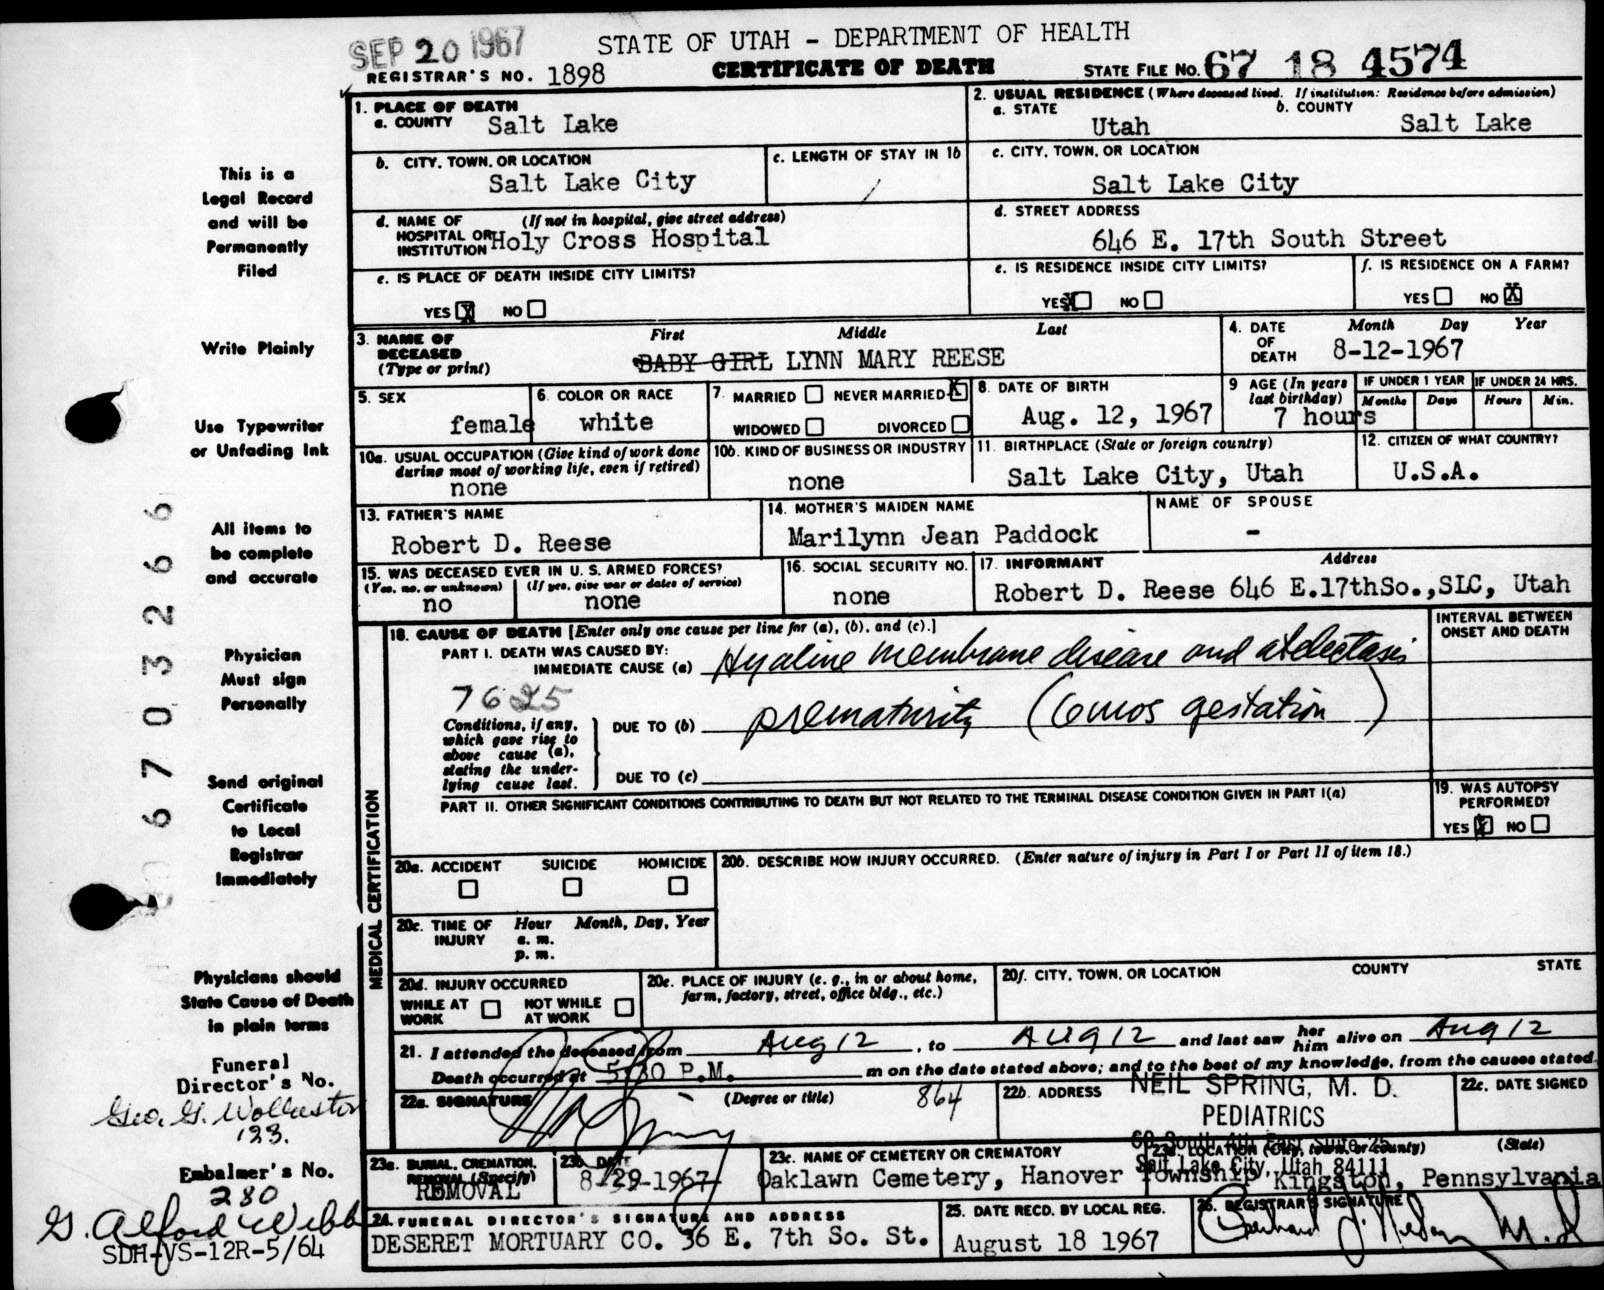 SEP 20 1967
STATE OF UTAH - DEPARTMENT OF HEALTH
REGISTRAR'S NO. 1898
CERTIFICATE OF DEATH
STATE FILE NO. 67 18 4574
1. PLACE OF DEATH
a. COUNTY Salt Lake
2. USUAL RESIDENCE (Where deceased lived. If institution: Residence before admission)
a. STATE Utah
b. COUNTY Salt Lake
b. CITY, TOWN, OR LOCATION
Salt Lake City
c. LENGTH OF STAY IN 1b
/
c. CITY, TOWN, OR LOCATION
Salt Lake City
d. NAME OF (If not in hospital, give street address)
HOSPITAL OR
INSTITUTION Holy Cross Hospital
d. STREET ADDRESS
646 E. 17th South Street
e. IS PLACE OF DEATH INSIDE CITY LIMITS?
YES X NO
e. IS RESIDENCE INSIDE CITY LIMITS?
YES X NO
f. IS RESIDENCE ON A FARM?
YES NO X
3. NAME OF
DECEASED
(Type or print)
First Middle Last
BABY GIRL LYNN MARY REESE
4. DATE
OF
DEATH
Month Day Year
8-12-1967
5. SEX
female
6. COLOR OR RACE
white
7. MARRIED NEVER MARRIED X
WIDOWED DIVORCED
8. DATE OF BIRTH
Aug. 12, 1967
9 AGE (In years
last birthday)
7 hours
IF UNDER 1 YEAR
Months Days
IF UNDER 24 HRS.
Hours Min.
10a. USUAL OCCUPATION (Give kind of work done
during most of working life, even if retired)
none
10b. KIND OF BUSINESS OR INDUSTRY
none
11. BIRTHPLACE (State or foreign country)
Salt Lake City, Utah
12. CITIZEN OF WHAT COUNTRY?
U.S.A.
13. FATHER'S NAME
Robert D. Reese
14. MOTHER'S MAIDEN NAME
Marilynn Jean Paddock
NAME OF SPOUSE
-
15. WAS DECEASED EVER IN U. S. ARMED FORCES?
(Yes, no, or unknown) (If yes, give war or dates of service)
no none
16. SOCIAL SECURITY NO.
none
17. INFORMANT Address
Robert D. Reese 646 E.17thSo.,SLC, Utah
18. CAUSE OF DEATH [Enter only one cause per line for (a), (b), and (c).]
INTERVAL BETWEEN
ONSET AND DEATH
PART I. DEATH WAS CAUSED BY:
IMMEDIATE CAUSE (a) Hyaline membrane disease and atelectasis
7625
Conditions, if any,
which gave rise to
above cause (a),
stating the under-
lying cause last.
DUE TO (b) prematurity (6 mos gestation)
DUE TO (c)
PART II. OTHER SIGNIFICANT CONDITIONS CONTRIBUTING TO DEATH BUT NOT RELATED TO THE TERMINAL DISEASE CONDITION GIVEN IN PART I(a)
19. WAS AUTOPSY
PERFORMED?
YES X NO
MEDICAL CERTIFICATION
20a. ACCIDENT SUICIDE HOMICIDE
20b. DESCRIBE HOW INJURY OCCURRED. (Enter nature of injury in Part I or Part II of item 18.)
20c. TIME OF
INJURY
Hour Month, Day, Year
a. m.
p. m.
20d. INJURY OCCURRED
WHILE AT
WORK
NOT WHILE
AT WORK
20e. PLACE OF INJURY (e. g., in or about home,
farm, factory, street, office bldg., etc.)
20f. CITY, TOWN, OR LOCATION COUNTY STATE
21. I attended the deceased from Aug 12, to Aug 12 and last saw her him alive on Aug 12
Death occurred at 5:30 P.M. m on the date stated above; and to the best of my knowledge, from the causes stated.
22a. SIGNATURE (Degree or title) 864
22b. ADDRESS NEIL SPRING, M. D.
PEDIATRICS
60 South 4th East Suite 25
Salt Lake City, Utah 84111
22c. DATE SIGNED
23a. BURIAL, CREMATION,
REMOVAL (Specify)
REMOVAL
23b. DATE
8-29-1967
23c. NAME OF CEMETERY OR CREMATORY
Oaklawn Cemetery, Hanover Township,
23d. LOCATION (City, town, or county) (State)
Kingston, Pennsylvania
24. FUNERAL DIRECTOR'S SIGNATURE AND ADDRESS
DESERET MORTUARY CO. 36 E. 7th So. St.
25. DATE RECD. BY LOCAL REG.
August 18 1967
26. REGISTRAR'S SIGNATURE
M.D.
This is a
Legal Record
and will be
Permanently
Filed
Write Plainly
Use Typewriter
or Unfading Ink
All items to
be complete
and accurate
Physician
Must sign
Personally
Send original
Certificate
to Local
Registrar
Immediately
Physicians should
State Cause of Death
in plain terms
Funeral
Director's No.
Geo. G. Wollaston
123.
Embalmer's No.
280
G. Alford Webb
SDH-VS-12R-5/64
67 032 66